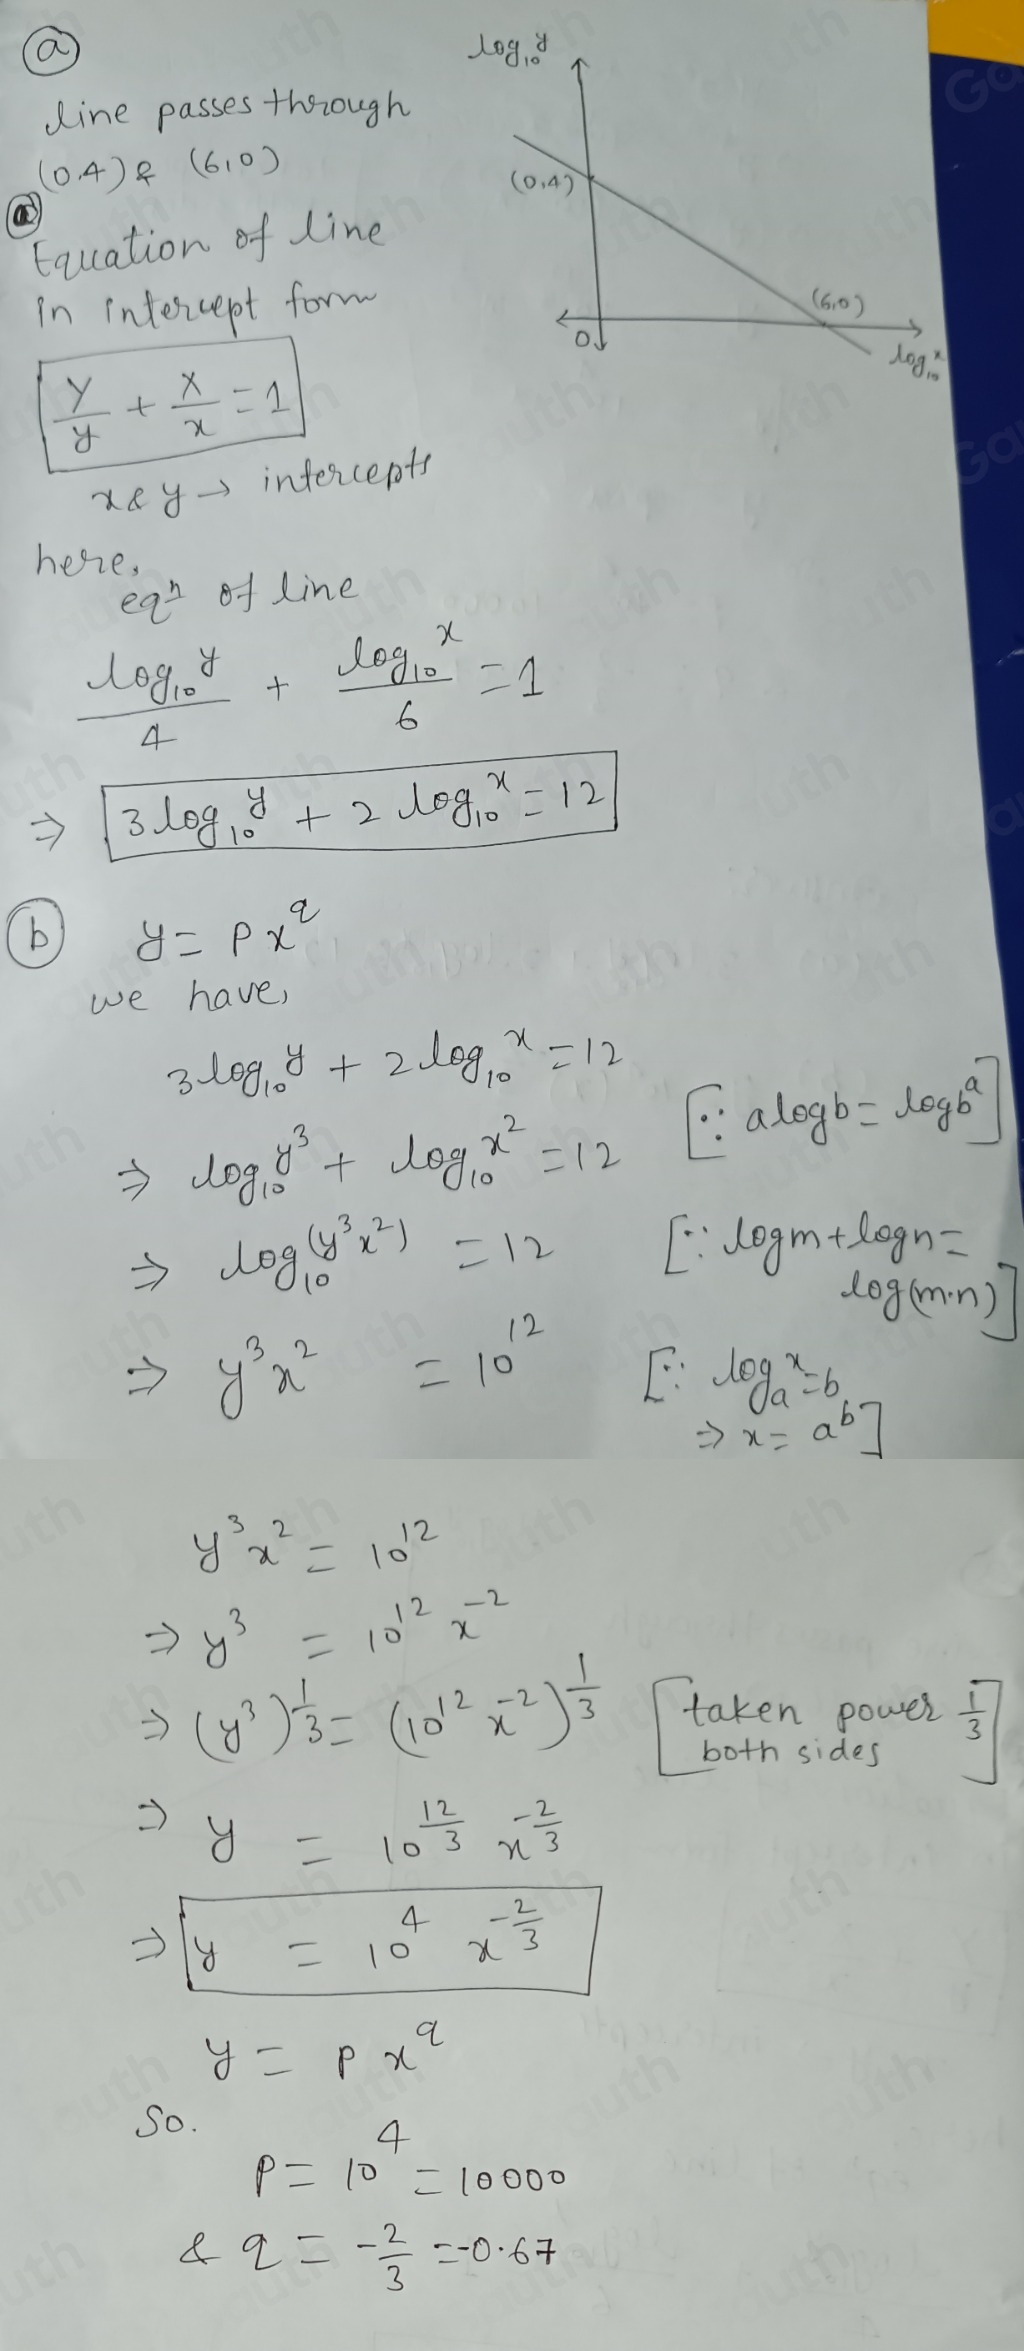 (a)
line passes through
(0,4) & (6,0)
(a)
Equation of line
in intercept form
Y/y + X/x = 1
x & y → intercepts
log₁₀y
(0,4)
(6,0)
O
log₁₀x
here,
eqⁿ of line
log₁₀y/4 + log₁₀x/6 = 1
⇒ 3log₁₀y + 2 log₁₀x = 12
(b) y = px^q
we have,
3log₁₀y + 2log₁₀x = 12
⇒ log₁₀y³ + log₁₀x² = 12 [∵ alogb = logb^a]
⇒ log₁₀(y³x²) = 12 [∵ logm + logn = log(m·n)]
⇒ y³x² = 10¹² [∵ logₐx = b
⇒ x = a^b]
y³x² = 10¹²
⇒ y³ = 10¹² x⁻²
⇒ (y³)^(1/3) = (10¹² x⁻²)^(1/3) [taken power 1/3
both sides]
⇒ y = 10^(12/3) x^(-2/3)
⇒ y = 10⁴ x^(-2/3)
y = px^q
So.
P = 10⁴ = 10000
& q = -2/3 = -0.67